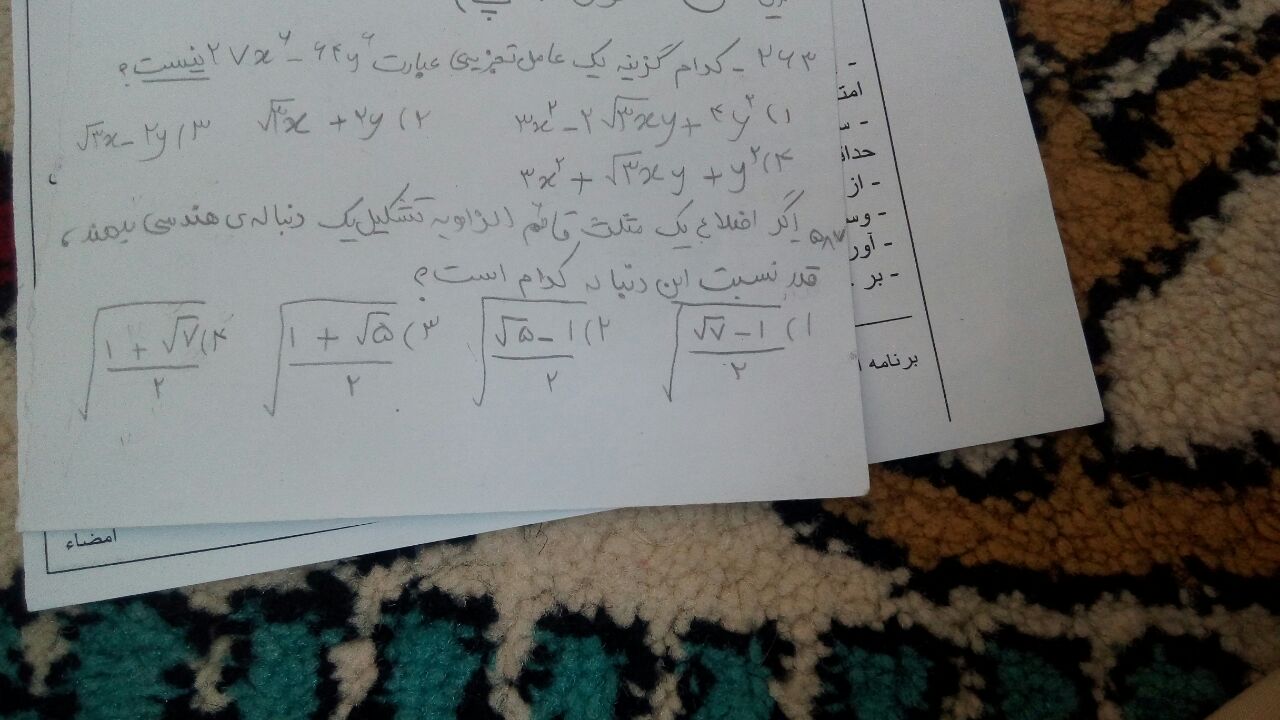 ۲۶۳ - کدام گزینه یک عامل تجزیه‌ی عبارت ۲۷x⁶ - ۶۴y⁶ نیست؟
۱) ۳x² - ۲√۳xy + ۴y² ۲) √۳x + ۲y ۳) √۳x - ۲y
۴) ۳x² + √۳xy + y²
۵۸۷ اگر اضلاع یک مثلث قائم الزاویه تشکیل یک دنباله‌ی هندسی بدهند،
قدر نسبت این دنباله کدام است؟
۱) √((√۷ - ۱)/۲) ۲) √((√۵ - ۱)/۲) ۳) √((۱ + √۵)/۲) ۴) √((۱ + √۷)/۲)
-
امت
- س
حداة
- از
- وس
- آور
- بر
برنامه
امضاء